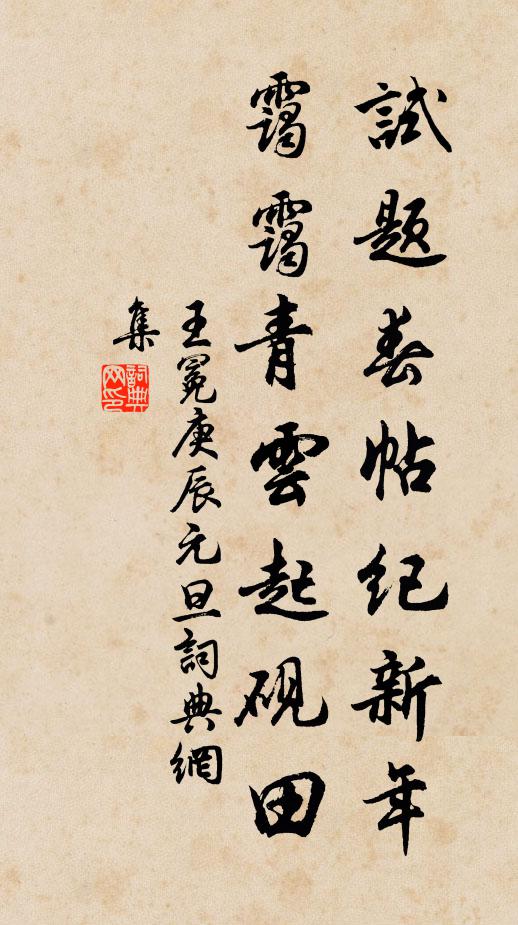 試題春帖纪新年
靄靄青雲起硯田
王冕庚辰元旦詞典網
集
詞典网印